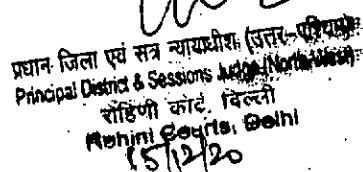 प्रधान जिला एवं सत्र न्यायाधीश (उत्तर-पश्चिम)
Principal District & Sessions Judge (North-West)
रोहिणी कोर्ट, दिल्ली
Rohini Courts, Delhi
15/12/20